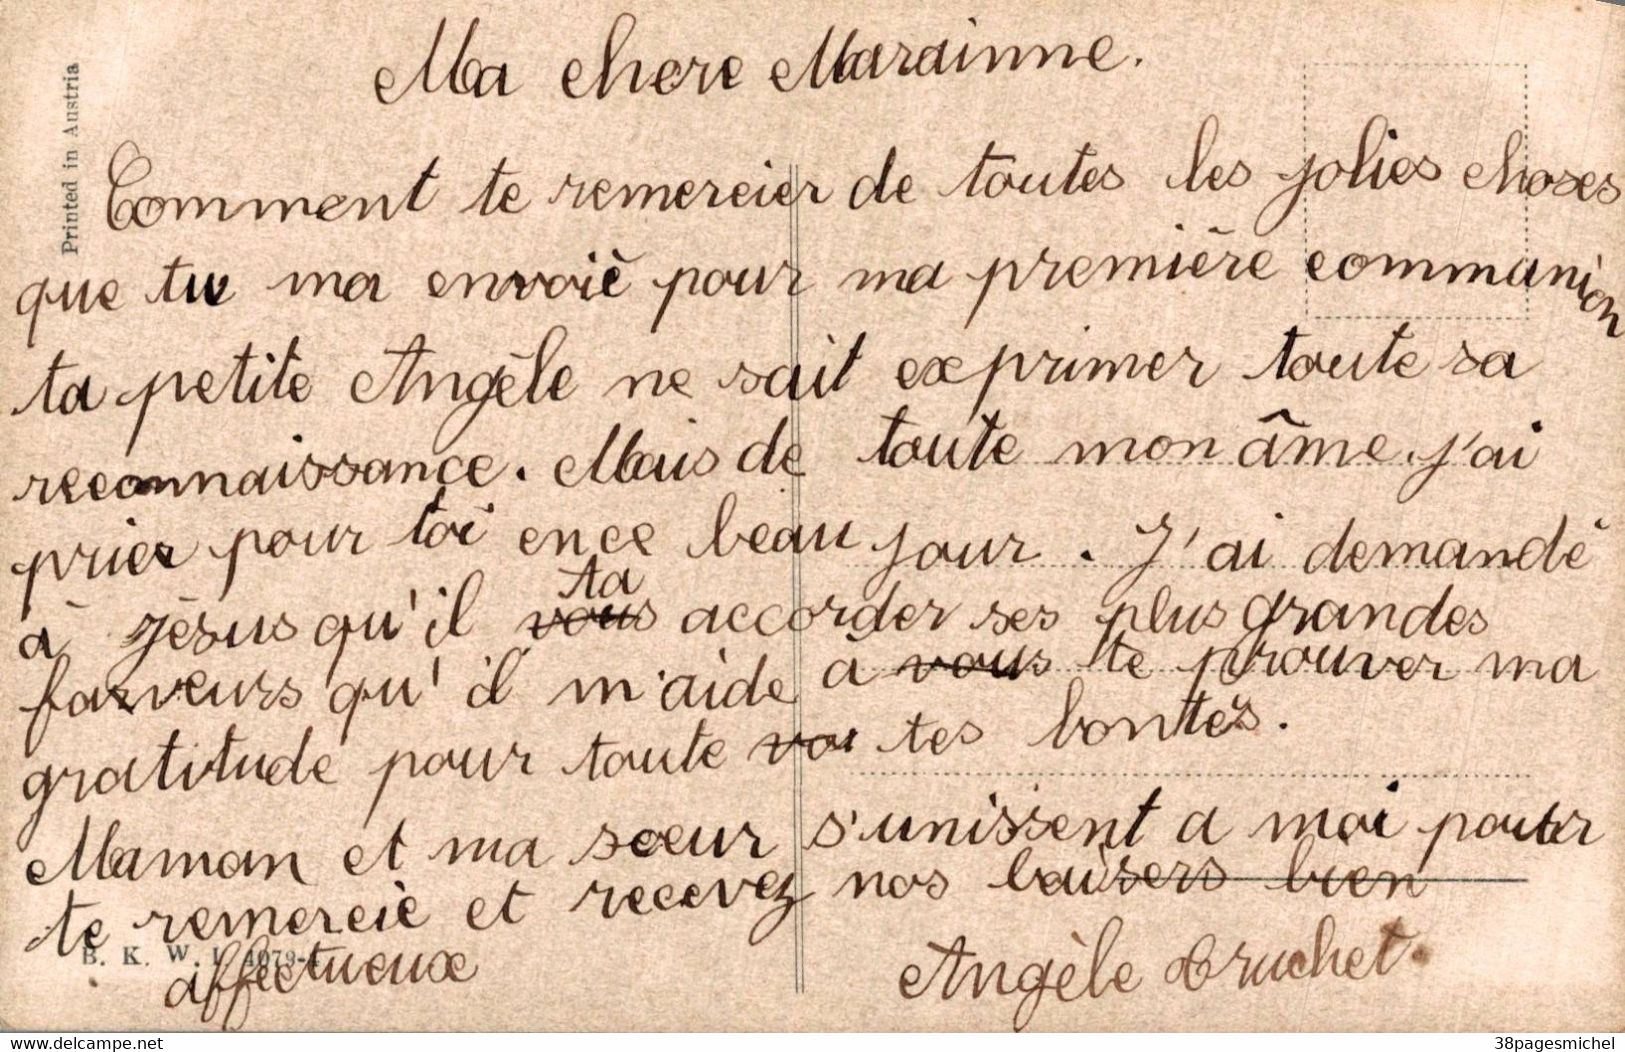 Ma chere Marainne.
Comment te remercier de toutes les jolies choses
que tu ma envoiè pour ma première communion
ta petite Angèle ne sait exprimer toute sa
reconnaissance. Mais de toute mon âme. j'ai
prier pour toi en ce beau jour. J'ai demandé
ta
à Jésus qu'il vous accorder ses plus grandes
faveurs qu'il m'aide à vous te prouver ma
gratitude pour toute vos tes bontés.
Maman et ma sœur s'unissent a moi pour
te remerciè et recevez nos baisers bien
affectueux
Angèle Cruchet.
Printed in Austria
B. K. W. I. 4079-4
www.delcampe.net
38pagesmichel